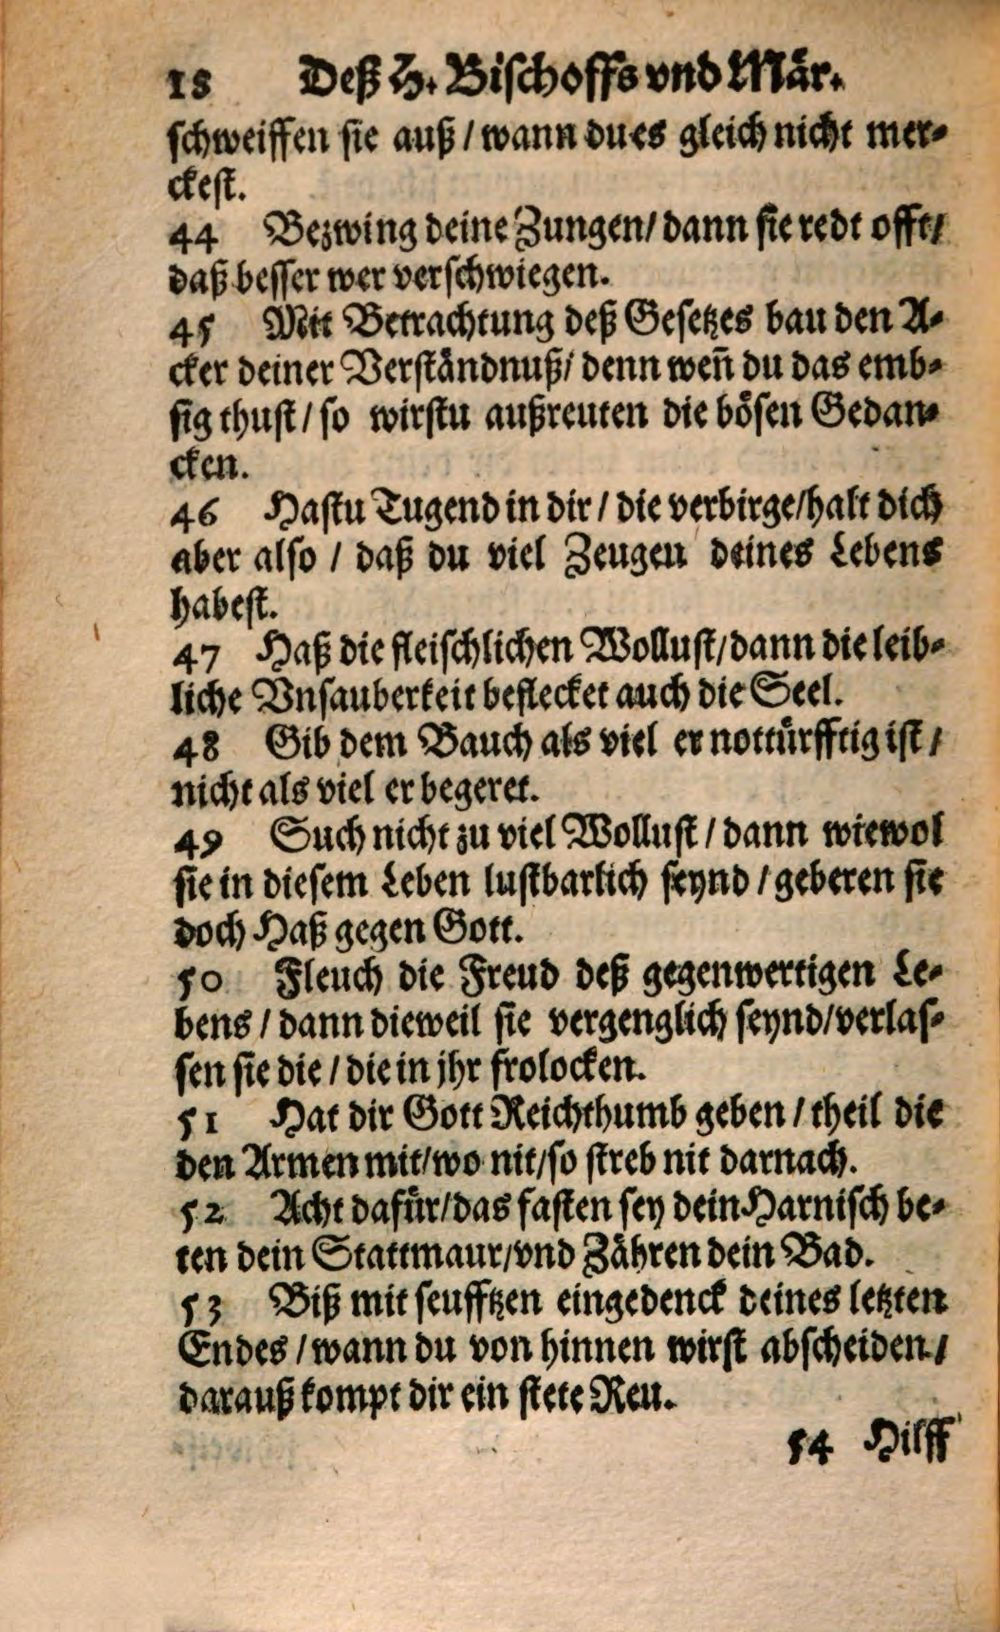 18 Deß H. Bischoffs vnd Mär.
schweiffen sie auß / wann du es gleich nicht mer-
ckest.
44 Bezwing deine Zungen / dann sie redt offt /
daß besser wer verschwiegen.
45 Mit Betrachtung deß Gesetzes bau den A-
cker deiner Verständnuß / denn weñ du das emb-
sig thust / so wirstu außreuten die bösen Gedan-
cken.
46 Hastu Tugend in dir / die verbirge / halt dich
aber also / daß du viel Zeugen deines Lebens
habest.
47 Haß die fleischlichen Wollust / dann die leib-
liche Vnsauberkeit beflecket auch die Seel.
48 Gib dem Bauch als viel er nottürfftig ist /
nicht als viel er begeret.
49 Such nicht zu viel Wollust / dann wiewol
sie in diesem Leben lustbarlich seynd / geberen sie
doch Haß gegen Gott.
50 Fleuch die Freud deß gegenwertigen Le-
bens / dann dieweil sie vergenglich seynd / verlas-
sen sie die / die in jhr frolocken.
51 Hat dir Gott Reichthumb geben / theil die
den Armen mit / wo nit / so streb nit darnach.
52 Acht dafür / das fasten sey dein Harnisch be-
ten dein Stattmaur / vnd Zähren dein Bad.
53 Biß mit seufftzen eingedenck deines letzten
Endes / wann du von hinnen wirst abscheiden /
darauß kompt dir ein stete Reu.
54 Hilff